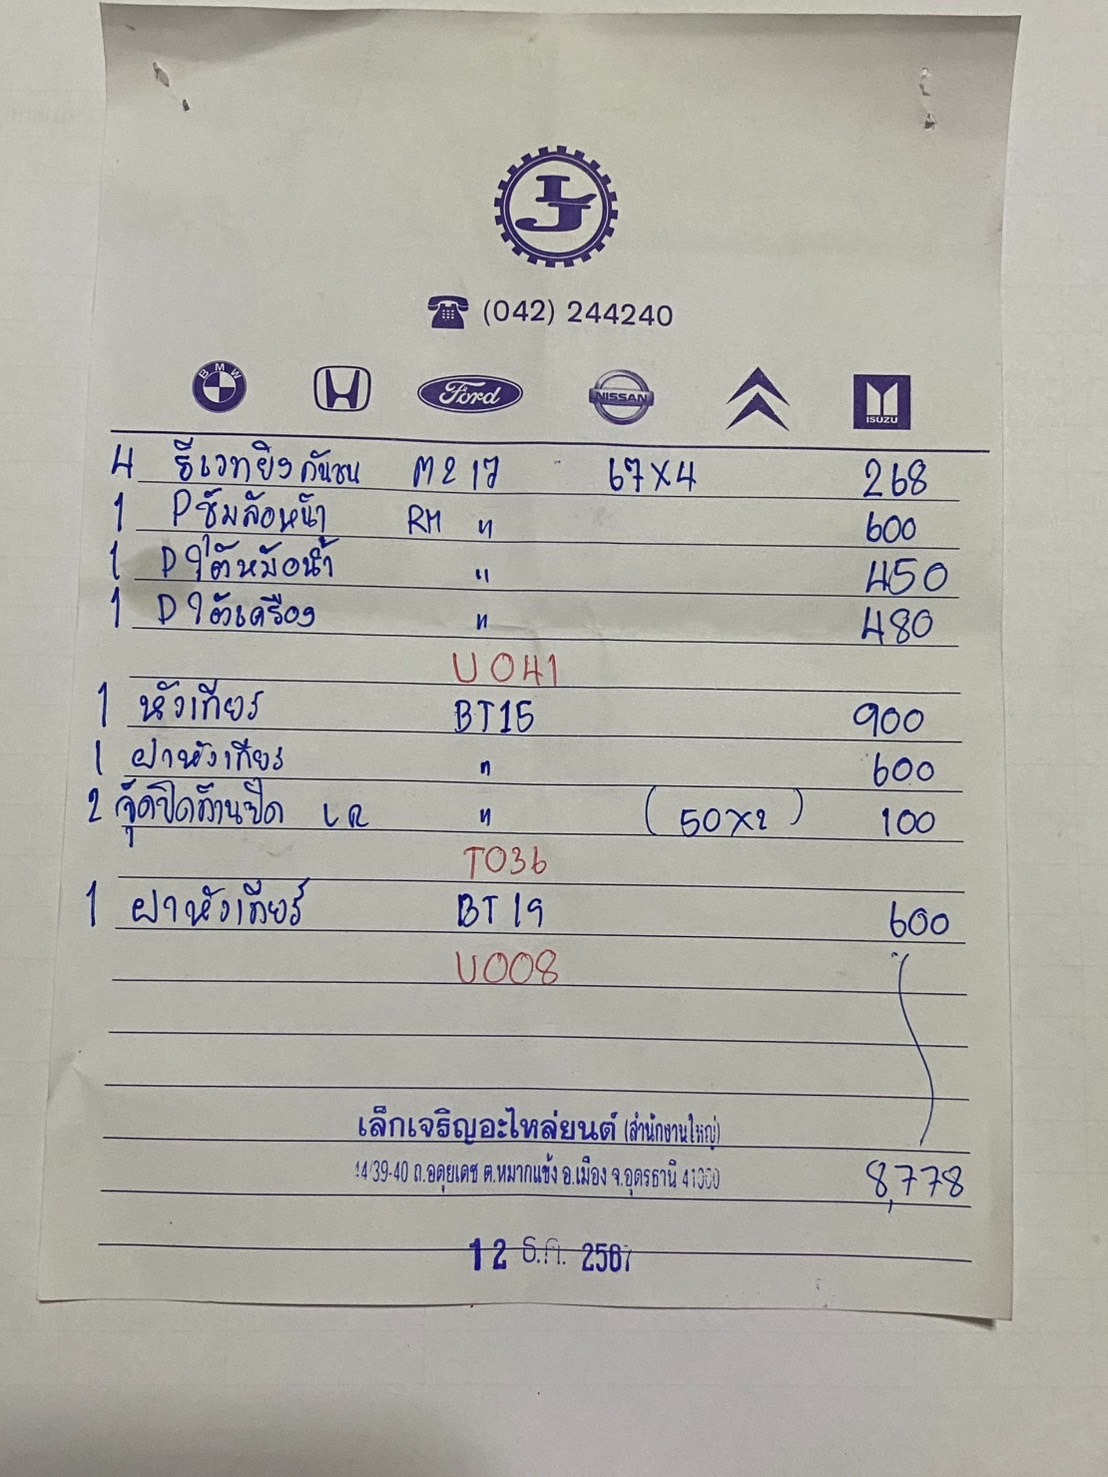 LJ
(042) 244240
BMW H Ford NISSAN ISUZU
4 รีเวทยิงกันชน M2 17 67x4 268
1 Pซุ้มล้อหน้า RM " 600
1 Pใต้หม้อน้ำ " 450
1 Pใต้เครื่อง " 480
U041
1 หัวเกียร์ BT15 900
1 ฝาหัวเกียร์ " 600
2 LR " (50x2) 100
T036
1 ฝาหัวเกียร์ BT19 600
U008
เล็กเจริญอะไหล่ยนต์ (สำนักงานใหญ่)
14/39-40 ถ.อดุยเดช ต.หมากแข้ง อ.เมือง จ.อุดรธานี 41000
8,778
12 ธ.ค. 2567